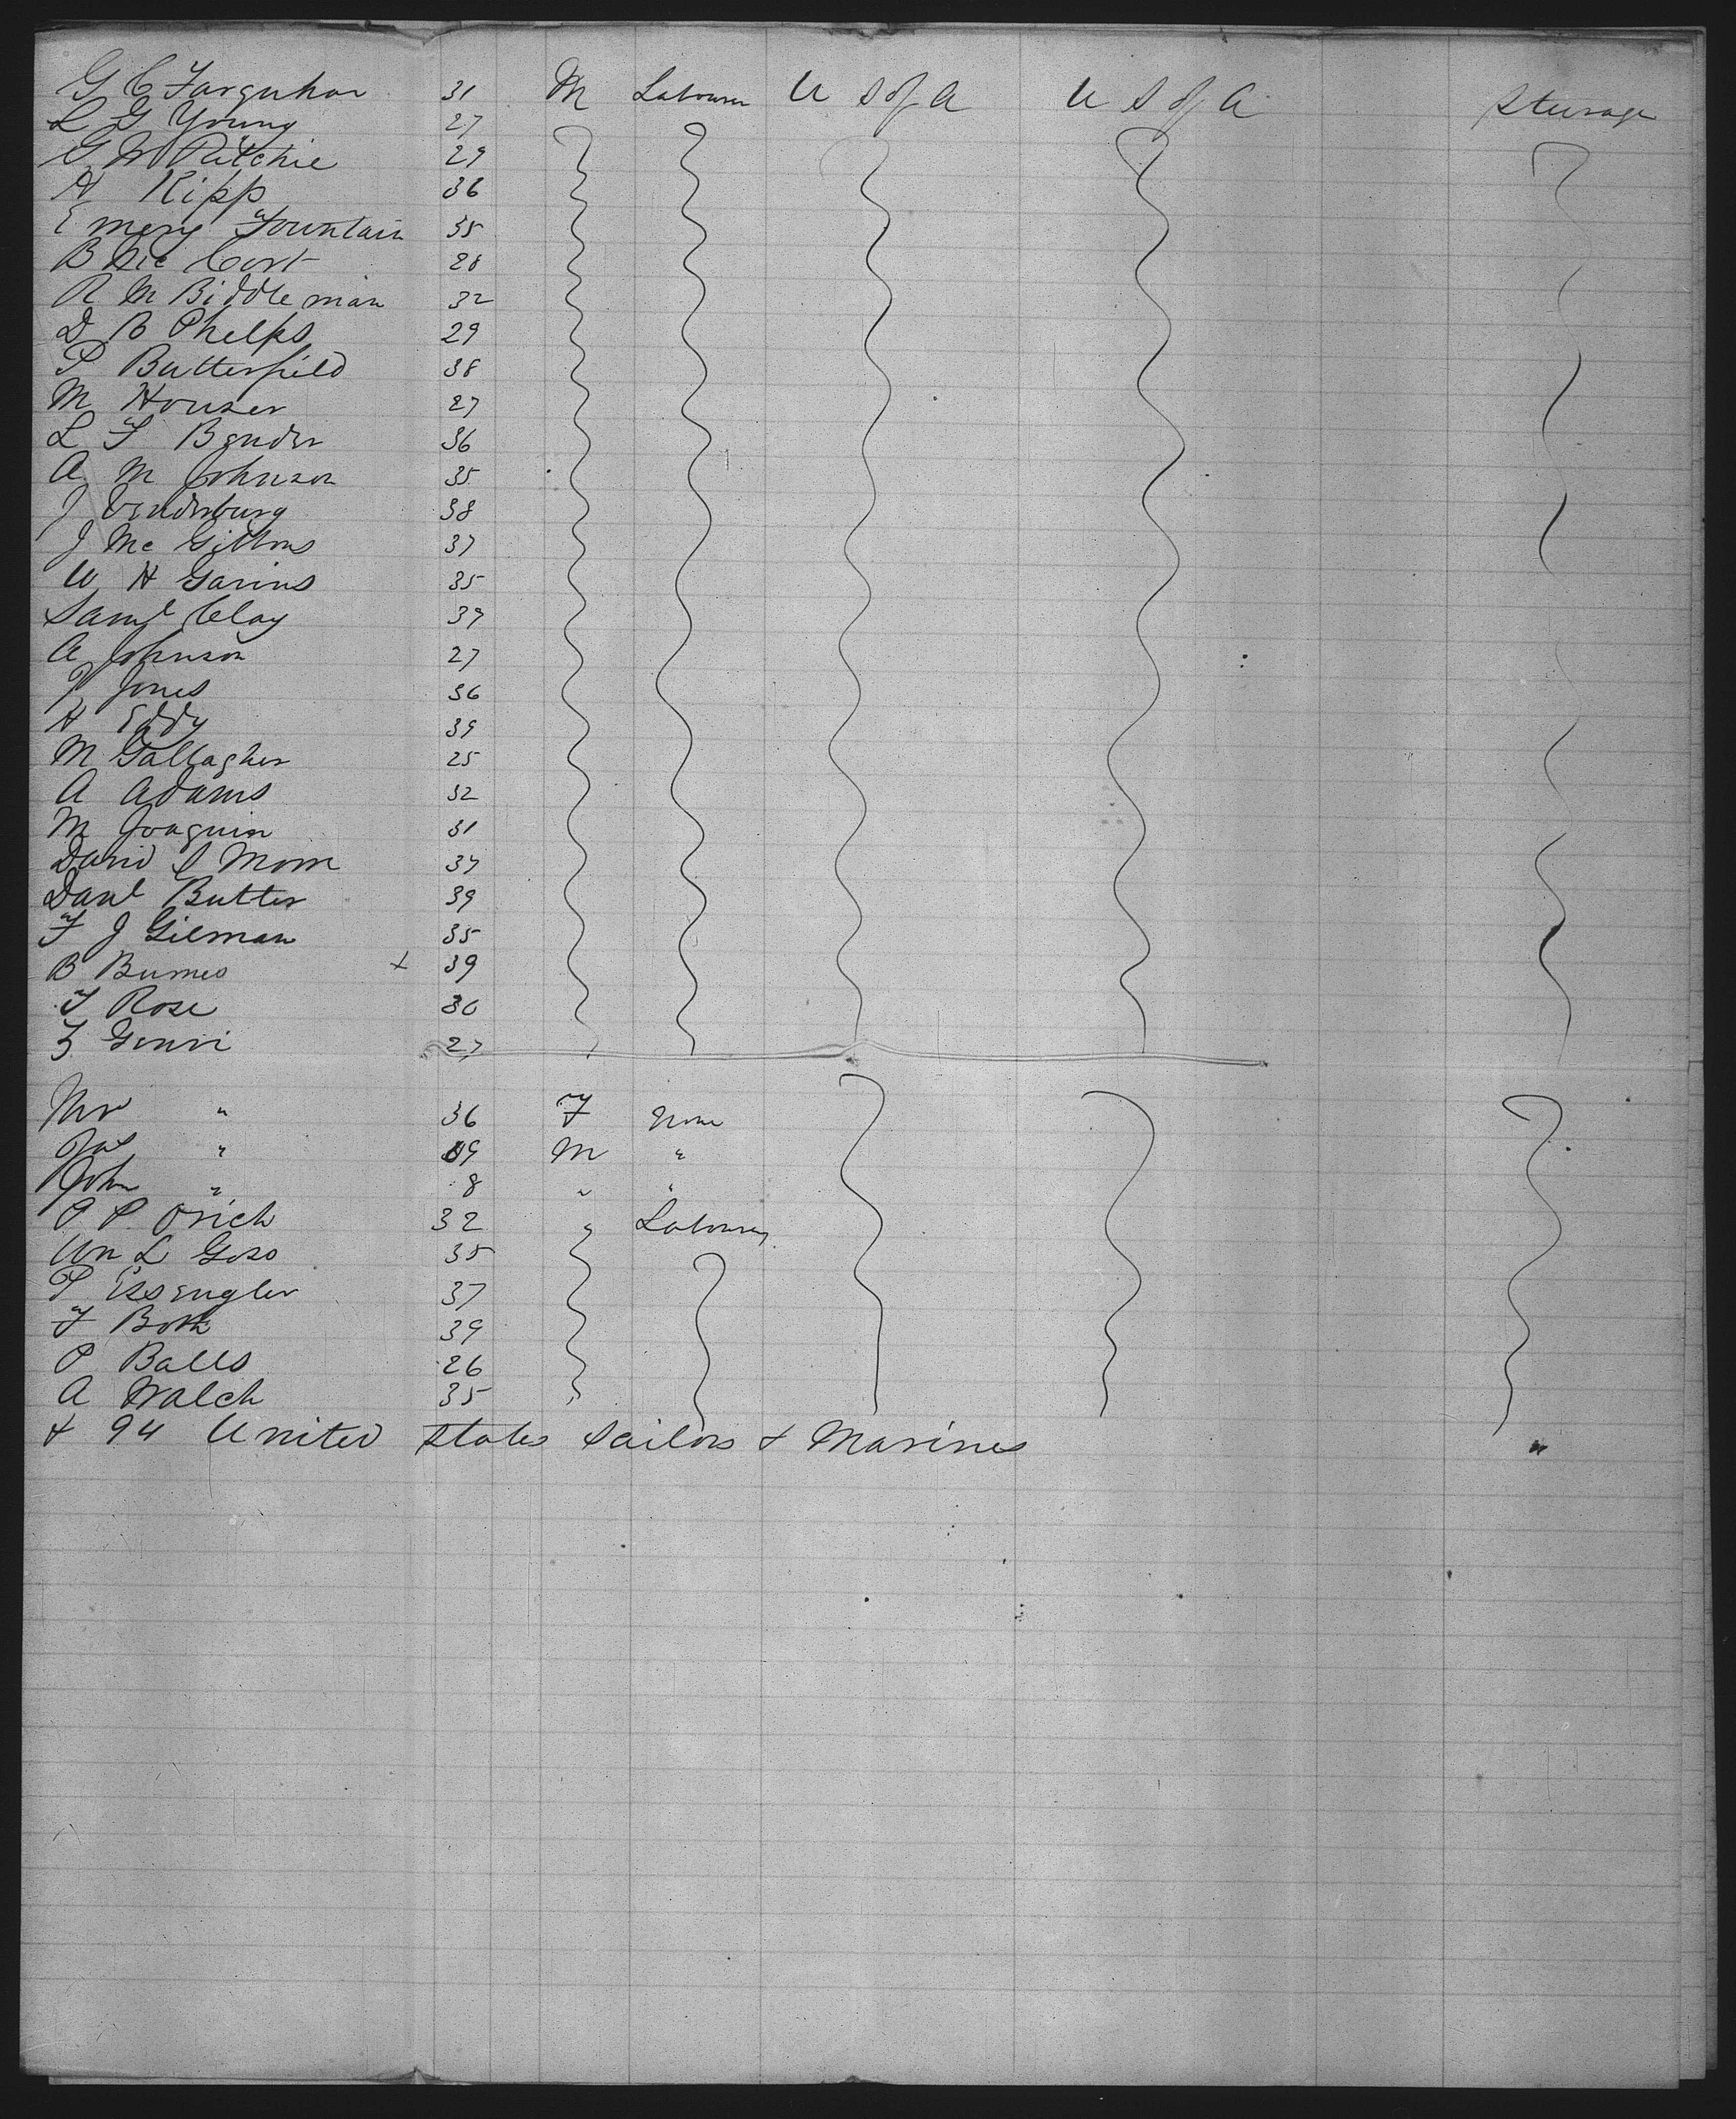 G C Farquhar 31 M Labourer U S of A U S of A Steerage
L G Young 27
G W Ritchie 29
N Kipp 36
Emery Fountain 35
B De Cort 28
R M Biddleman 32
D B Phelps 29
P Butterfield 38
M Houser 27
L F Bender 36
A M Johnson 35
J Venderburg 38
J Mc Gittons 37
W H Garins 35
Saml Clay 37
A Johnson 27
P Jones 36
H Eddy 39
M Gallagher 25
A Adams 32
M Joaquin 31
David S Morse 37
Danl Butter 39
F J Gilman 35
B Burnes + 39
F Rose 30
Z 27
Mrs " 36 F None
Jas " 9 M "
John " 8 " "
P P Orich 32 " Labourer
Wm L Goso 35
P 37
F Both 39
P Balls 26
A Walch 35
+ 94 United States Sailors + Marines